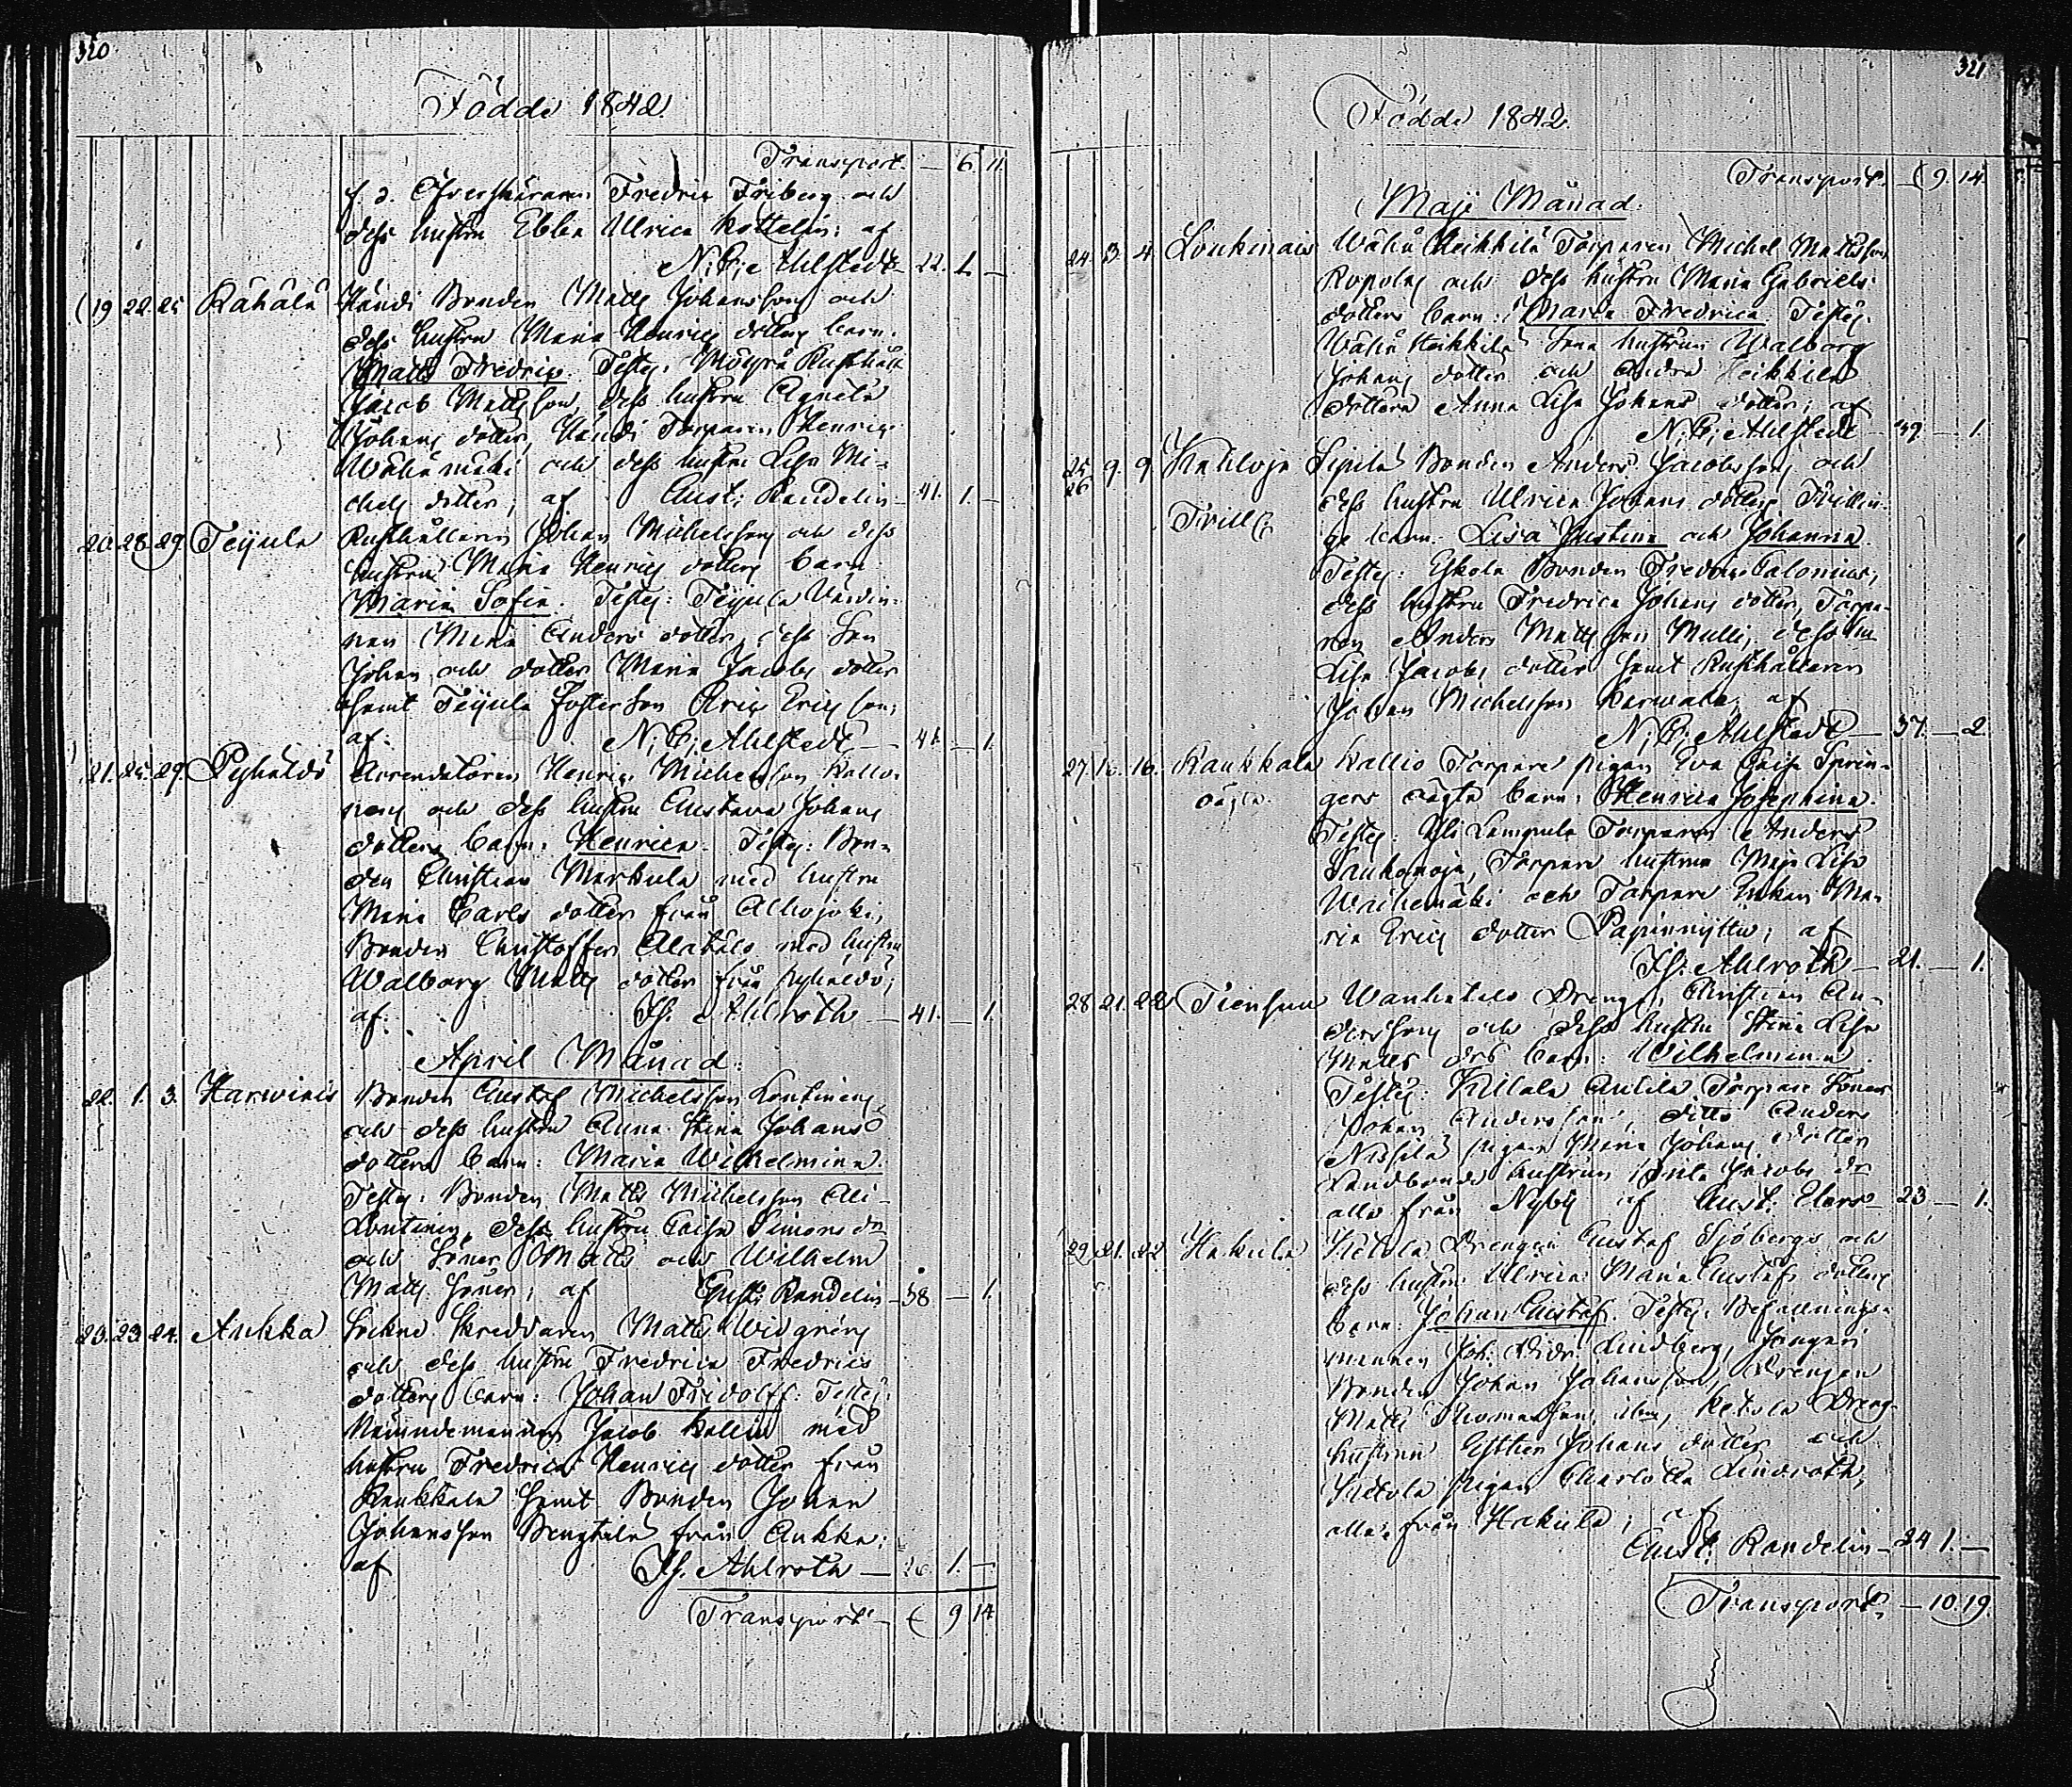 320
Födde 1842.
Transport. — 6. 11.
f. d. Öfverskäraren Fredric Friberg och
dess hustru Ebba Ulrica Kottelin; af
N: C: Ahlstedt — 22. 1. —
19 22. 25 Kähälä Händi Bonden Matts Johansson och
dess hustru Maria Henrics dotters barn:
Matts Fredric. Testes: Rusthåll
Jacob Mattsson, dess hustru Agneta
Johans dotter, Händi Torparen Henric
Wähämäki och dess hustru Lisa Mi-
chels dotter; af Gust: Randelin — 41. 1. —
20. 28. 29. Teijula Rusthållaren Johan Michelsson och dess
hustru Maria Henrics dotters barn
Maria Sofia. Testes: Teijula Värdin-
nan Maria Anders dotter, dess Son
Johan och dotter Maria Jacobs dotter
samt Teijula fosterson Eric Ericsson;
af N: C: Ahlstedt — 41 — 1.
21. 25. 29. Pyhäldö Arrendatoren Henric Michelsson Kallo-
nens och dess hustru Gustava Johans
dotters barn: Henrica. Testes: Bon-
den Christian Markula med hustru
Maria Carls dotter från Alhojoki,
Bonden Christoffer Alatalo med hustru
Walborg Matts dotter från Pyhäldö;
af Is. Ahlroth — 41. — 1.
April Månad:
22. 1. 3. Harwiais Bonden Gustaf Michelsson Lontinens
och dess hustru Anna Stina Johans
dotters barn: Maria Wilhelmina.
Testes: Bonden Matts Michelsson Ali-
Lontinen, dess hustru Caisa Simons dr
och Söner Matts och Wilhelm
Matts Söner; af Gust: Randelin — 38 — 1.
23. 23 24. Aukka Sockne Skreddaren Matts Widgréns
och dess hustru Fredrica Fredrics
dotters barn: Johan Fridolff: Testes:
Nämndemannen Jacob Kalin med
hustru Fredrica Henrics dotter från
Raukkala samt Bonden Johan
Johansson Bengtilä från Aukka;
af Is. Ahlroth — 26 1. —
Transport — 9 14
321
Födde 1842.
Transport. — 9. 14.
Maji Månad:
24. 3. 4. Loukinais Wähä Heikkilä Torparen Michel Mattsson
Ropolas och dess hustru Maria Gabriels
dotters barn: Maria Fredrica. Testes:
Wähä Heikkilä Sone hustrun Walborg
Johans dotter och Heikkilä
dottern Anna Lisa Johans dotter; af
N: C: Ahlstedt — 39. — 1.
25 26 9. 9. Kahloja Sipilä Bonden Anders Jacobssons och
Trill: dess hustru Ulrica Johans dotters Tvillin-
ge barn: Lisa Justina och Johanna.
Testes: Eskola Bonden Fredric Calonius,
dess hustru Fredrica Johans dotter, Torpa-
ren Anders Mattsson Mulli, dess hu
Lisa Jacobs dotter samt Rusthållaren
Johan Michelsson Carwala; af
N: C: Ahlstedt — 37. — 2.
27. 16. 16. Raukkala Kallio Torpare pigan Eva Caisa Sprin-
oägta. gers oägta barn: Henrica Josephina.
Testes: Ali Lampula Torparen Anders
Saukonoja, Torpare hustrun Maja Lisa
Waihemäki och Torpare Enkan Ma-
ria Erics dotter Papinnyttu; af
Is. Ahlroth — 21. — 1.
28 21. 22 Tiensuu Wanhatalo Drengen Christian An-
derssons och dess hustru Stina Lisa
Matts drs barn: Wilhelmina.
Testes: Killala Anttila Torpare Sonen
Johan Andersson, ditto Anders
Nissilä, pigan Maria Johans dotter
Landbonde hustrun Brita Jacobs dr
alla från Nyby af Gust: Elers — 23 — 1.
29. 21. 22 Hakula Ketola Drengen Gustaf Sjöbergs och
dess hustru Ulrica Maria Gustafs dotters
barn: Johan Gustaf. Testes: Befallnings-
mannen Joh: Didr: Lindberg,
Bonden Johan Johansson, Drengen
Matts Thomasson, Ketola Dreng
hustrun Esther Johans dotter och
Ketola Pigan Charlotta Lindroth,
alla från Hakula; af
Gust: Randelin — 24 1. —
Transport — 10. 19.